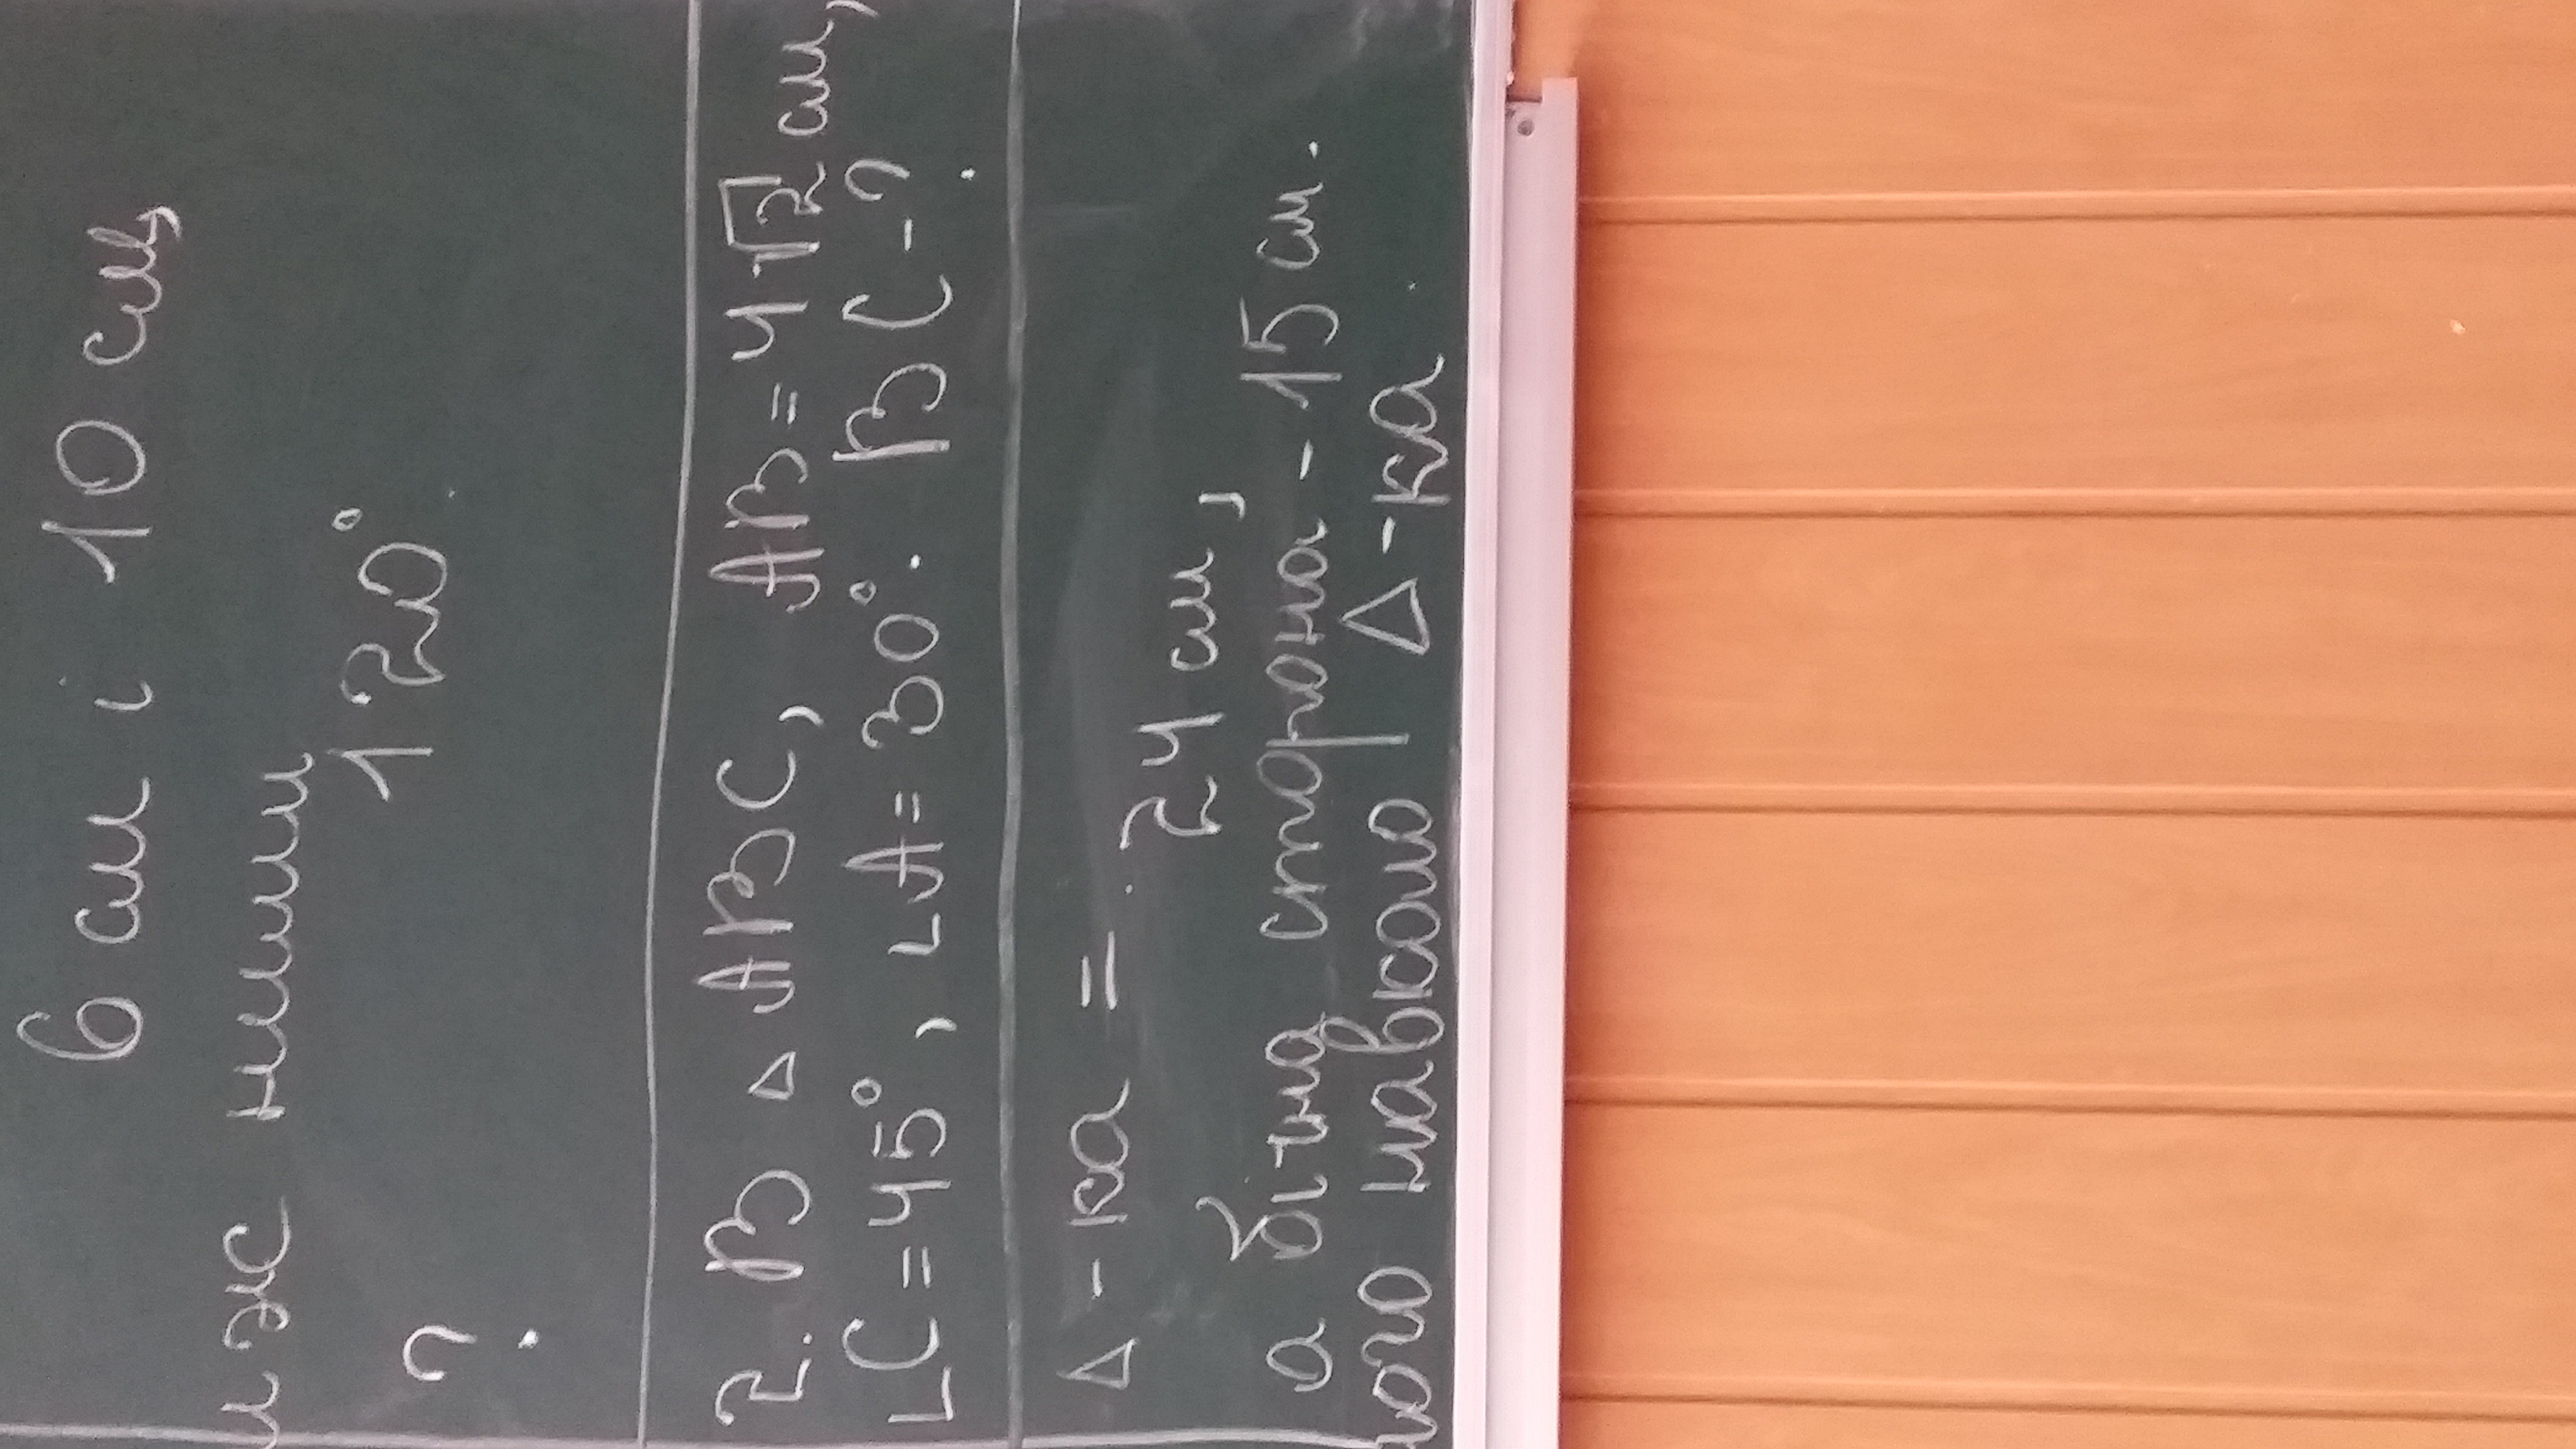 6 см і 10 см,
між ними
120°
?
2. В △ ABC, AB = 4√2 см,
∠C = 45°, ∠A = 30°. BC - ?
△-ка = 24 см,
а бічна сторона - 15 см.
навколо △-ка